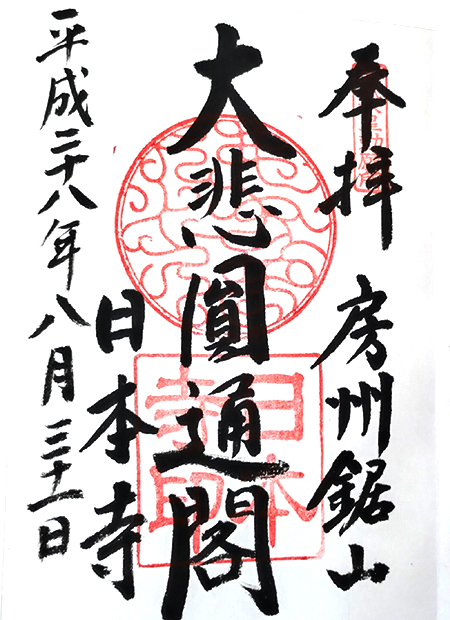 奉拝
房州鋸山
大悲圓通閣
日本寺
平成二十八年八月三十一日
日本寺印